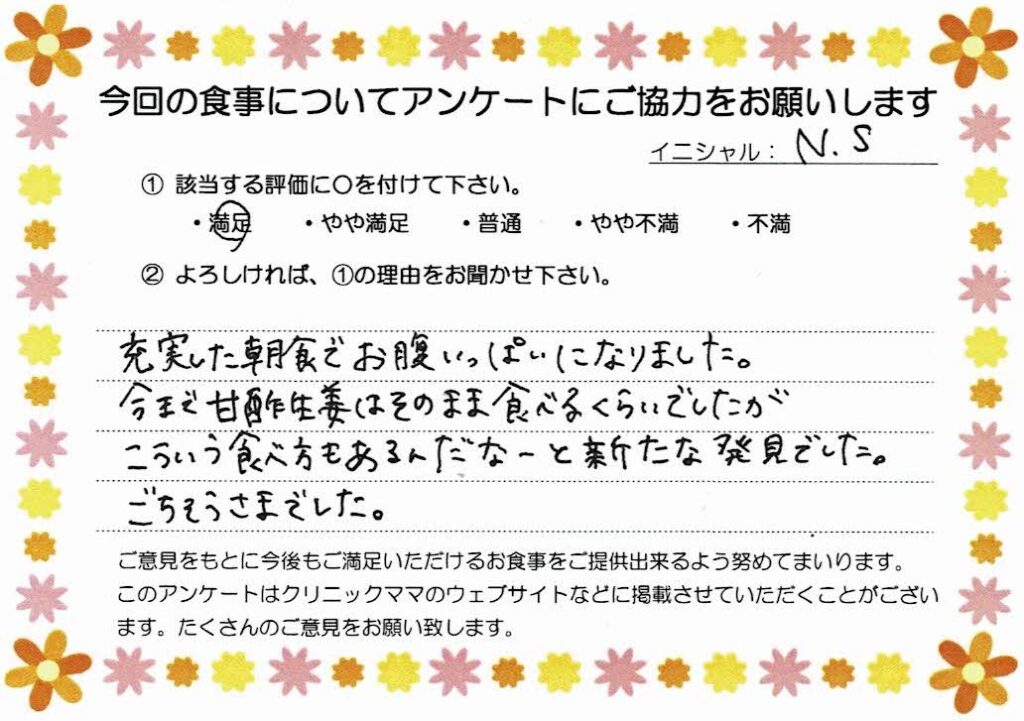 今回の食事についてアンケートにご協力をお願いします
イニシャル： N.S
① 該当する評価に〇を付けて下さい。
・満足 ・やや満足 ・普通 ・やや不満 ・不満
② よろしければ、①の理由をお聞かせ下さい。
充実した朝食でお腹いっぱいになりました。
今まで甘酢生姜はそのまま食べるくらいでしたが
こういう食べ方もあるんだなーと新たな発見でした。
ごちそうさまでした。
ご意見をもとに今後もご満足いただけるお食事をご提供出来るよう努めてまいります。
このアンケートはクリニックママのウェブサイトなどに掲載させていただくことがござい
ます。たくさんのご意見をお願い致します。